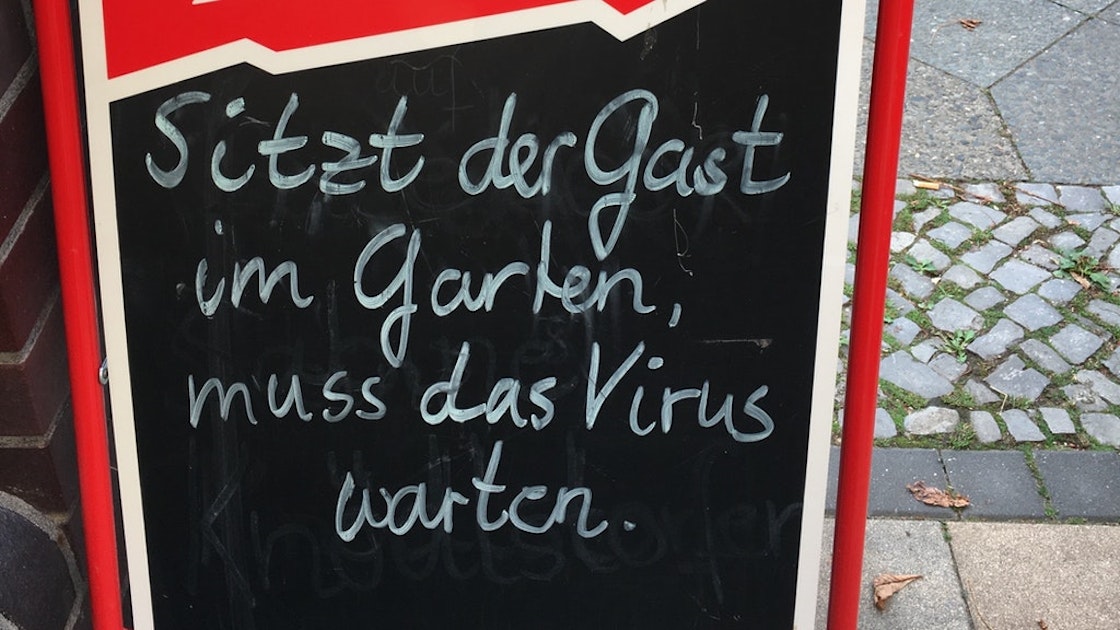 Sitzt der Gast
im Garten,
muss das Virus
warten.